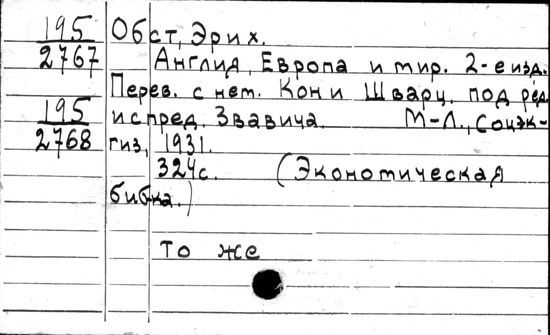 195
2767
Обст, Эрих.
Англия, Европа и мир. 2-е изд.
Перев. с нем. Кон и Шварц. под ред.
195
2768
и с пред. Звавича. М-Л., Соцэк-
гиз, 1931.
324с. (Экономическая
биб-ка.)
То же